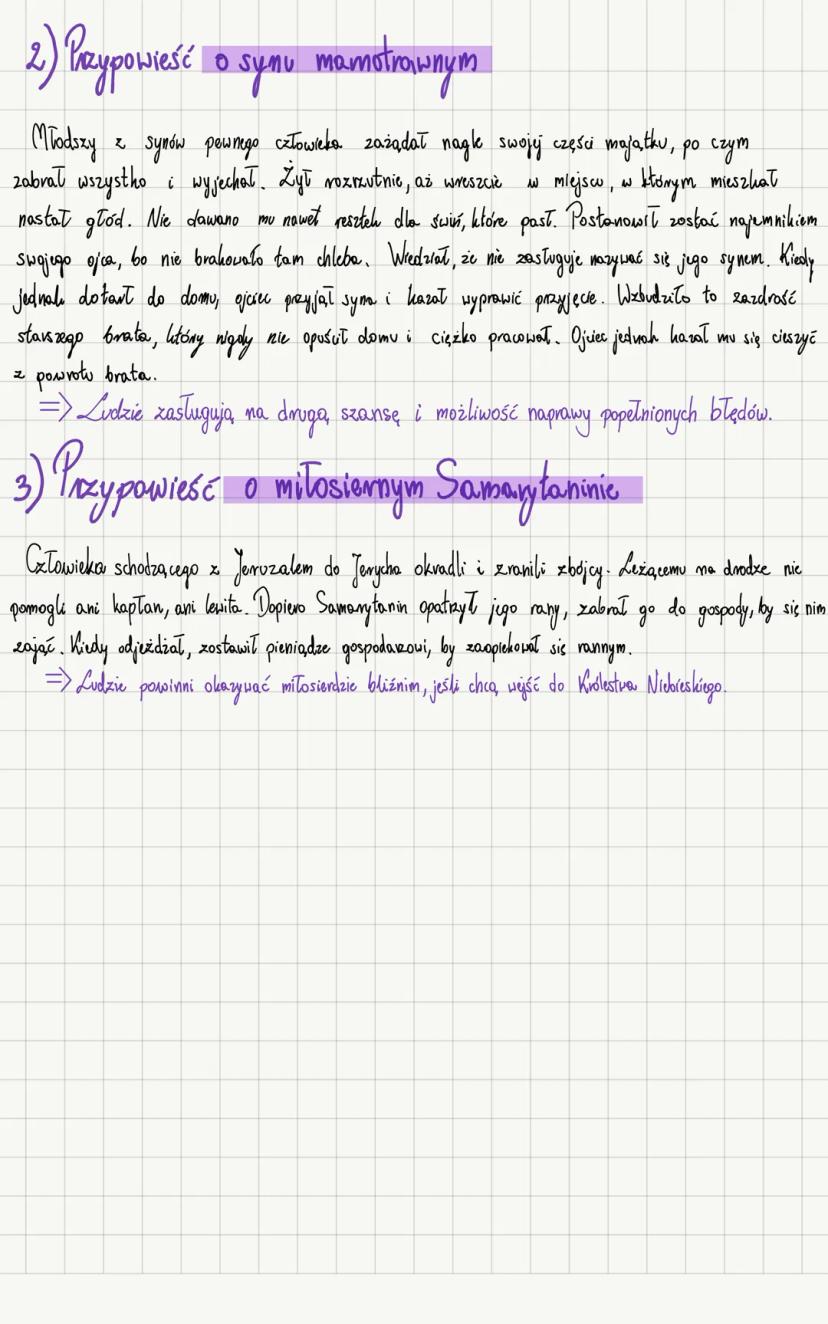 2) Przypowieść o synu marnotrawnym
Młodszy z synów pewnego człowieka zażądał nagle swojej części majątku, po czym
zabrał wszystko i wyjechał. Żył rozrzutnie, aż wreszcie w miejscu, w którym mieszkał
nastał głód. Nie dawano mu nawet resztek dla świń, które pasł. Postanowił zostać najemnikiem
swojego ojca, bo nie brakowało tam chleba. Wiedział, że nie zasługuje nazywać się jego synem. Kiedy
jednak dotarł do domu, ojciec przyjął syna i kazał wyprawić przyjęcie. Wzbudziło to zazdrość
starszego brata, który nigdy nie opuścił domu i ciężko pracował. Ojciec jednak kazał mu się cieszyć
z powrotu brata.
=> Ludzie zasługują na drugą szansę i możliwość naprawy popełnionych błędów.
3) Przypowieść o miłosiernym Samarytaninie
Człowieka schodzącego z Jeruzalem do Jerycha okradli i zranili zbójcy. Leżącemu na drodze nie
pomogli ani kapłan, ani lewita. Dopiero Samarytanin opatrzył jego rany, zabrał go do gospody, by się nim
zająć. Kiedy odjeżdżał, zostawił pieniądze gospodarzowi, by zaopiekował się rannym.
=> Ludzie powinni okazywać miłosierdzie bliźnim, jeśli chcą wejść do Królestwa Niebieskiego.